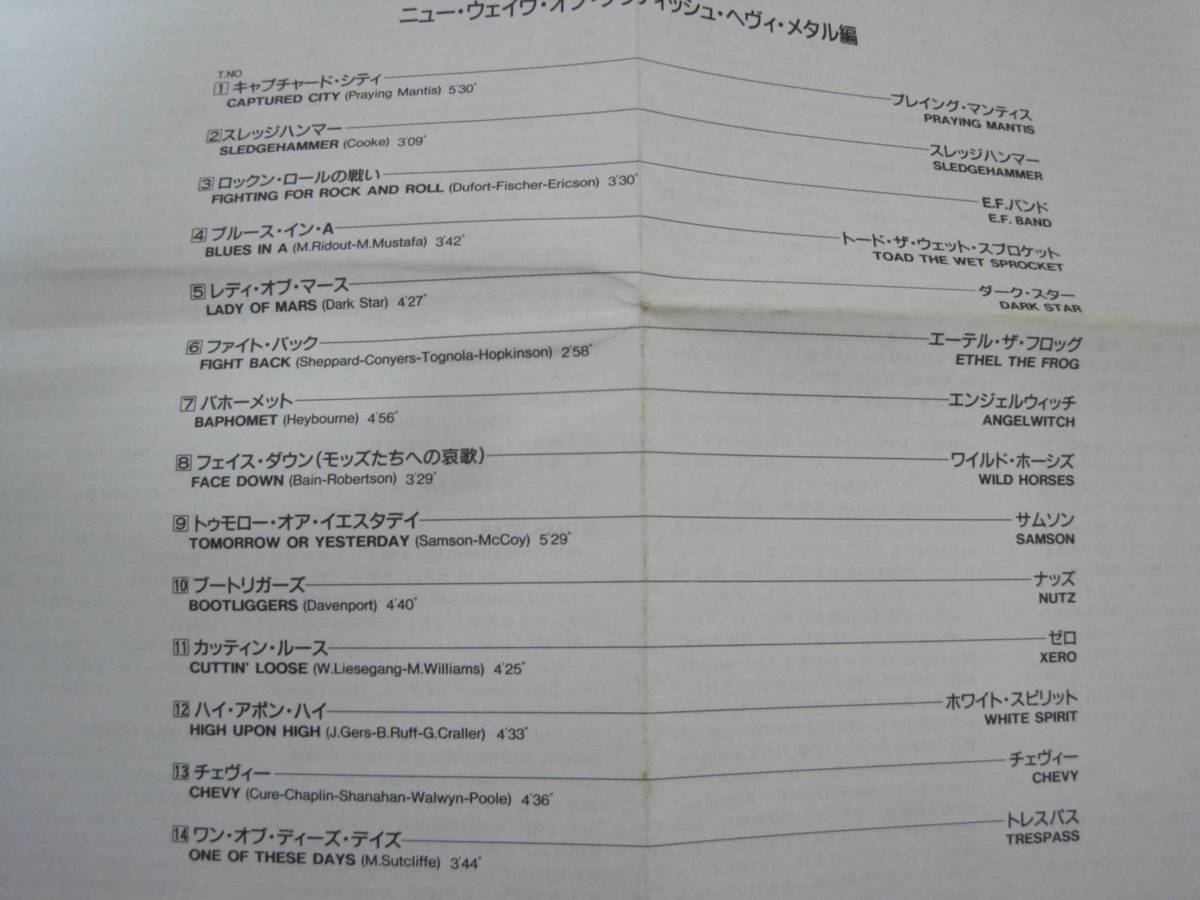 ニュー・ウェイヴ・オブ・ブリティッシュ・ヘヴィ・メタル編
T.NO
1 キャプチャード・シティ
CAPTURED CITY (Praying Mantis) 5'30"
プレイング・マンティス
PRAYING MANTIS
2 スレッジハンマー
SLEDGEHAMMER (Cooke) 3'09"
スレッジハンマー
SLEDGEHAMMER
3 ロックン・ロールの戦い
FIGHTING FOR ROCK AND ROLL (Dufort-Fischer-Ericson) 3'30"
E.F.バンド
E.F. BAND
4 ブルース・イン・A
BLUES IN A (M.Ridout-M.Mustafa) 3'42"
トード・ザ・ウェット・スプロケット
TOAD THE WET SPROCKET
5 レディ・オブ・マース
LADY OF MARS (Dark Star) 4'27"
ダーク・スター
DARK STAR
6 ファイト・バック
FIGHT BACK (Sheppard-Conyers-Tognola-Hopkinson) 2'58"
エーテル・ザ・フロッグ
ETHEL THE FROG
7 バホーメット
BAPHOMET (Heybourne) 4'56"
エンジェルウィッチ
ANGELWITCH
8 フェイス・ダウン(モッズたちへの哀歌)
FACE DOWN (Bain-Robertson) 3'29"
ワイルド・ホーシズ
WILD HORSES
9 トゥモロー・オア・イエスタデイ
TOMORROW OR YESTERDAY (Samson-McCoy) 5'29"
サムソン
SAMSON
10 ブートリガーズ
BOOTLIGGERS (Davenport) 4'40"
ナッズ
NUTZ
11 カッティン・ルース
CUTTIN' LOOSE (W.Liesegang-M.Williams) 4'25"
ゼロ
XERO
12 ハイ・アポン・ハイ
HIGH UPON HIGH (J.Gers-B.Ruff-G.Craller) 4'33"
ホワイト・スピリット
WHITE SPIRIT
13 チェヴィー
CHEVY (Cure-Chaplin-Shanahan-Walwyn-Poole) 4'36"
チェヴィー
CHEVY
14 ワン・オブ・ディーズ・デイズ
ONE OF THESE DAYS (M.Sutcliffe) 3'44"
トレスパス
TRESPASS